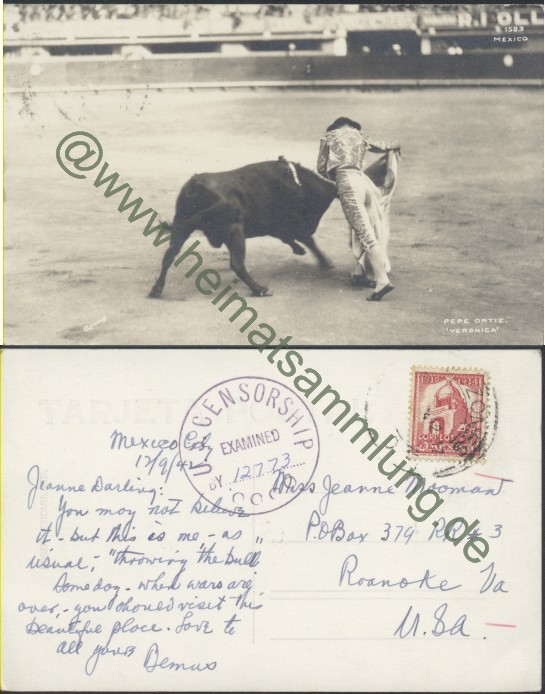 R. I OLL
1503
MEXICO
PEPE ORTIZ.
"VERONICA"
@www.heimatsammlung.de
TARJETA
1910 1938
CORREOS
U. CENSORSHIP
EXAMINED
BY 12773
Mexico City
12/9/42
Jeanne Darling:
You may not believe
it - but this is me - as
usual; "throwing the bull"
Someday - when wars are
over, - you should visit this
beautiful place. Love to
all yours
Bemus
Miss Jeanne Mooman
P.O Box 379 RR #3
Roanoke Va
U.S.a.